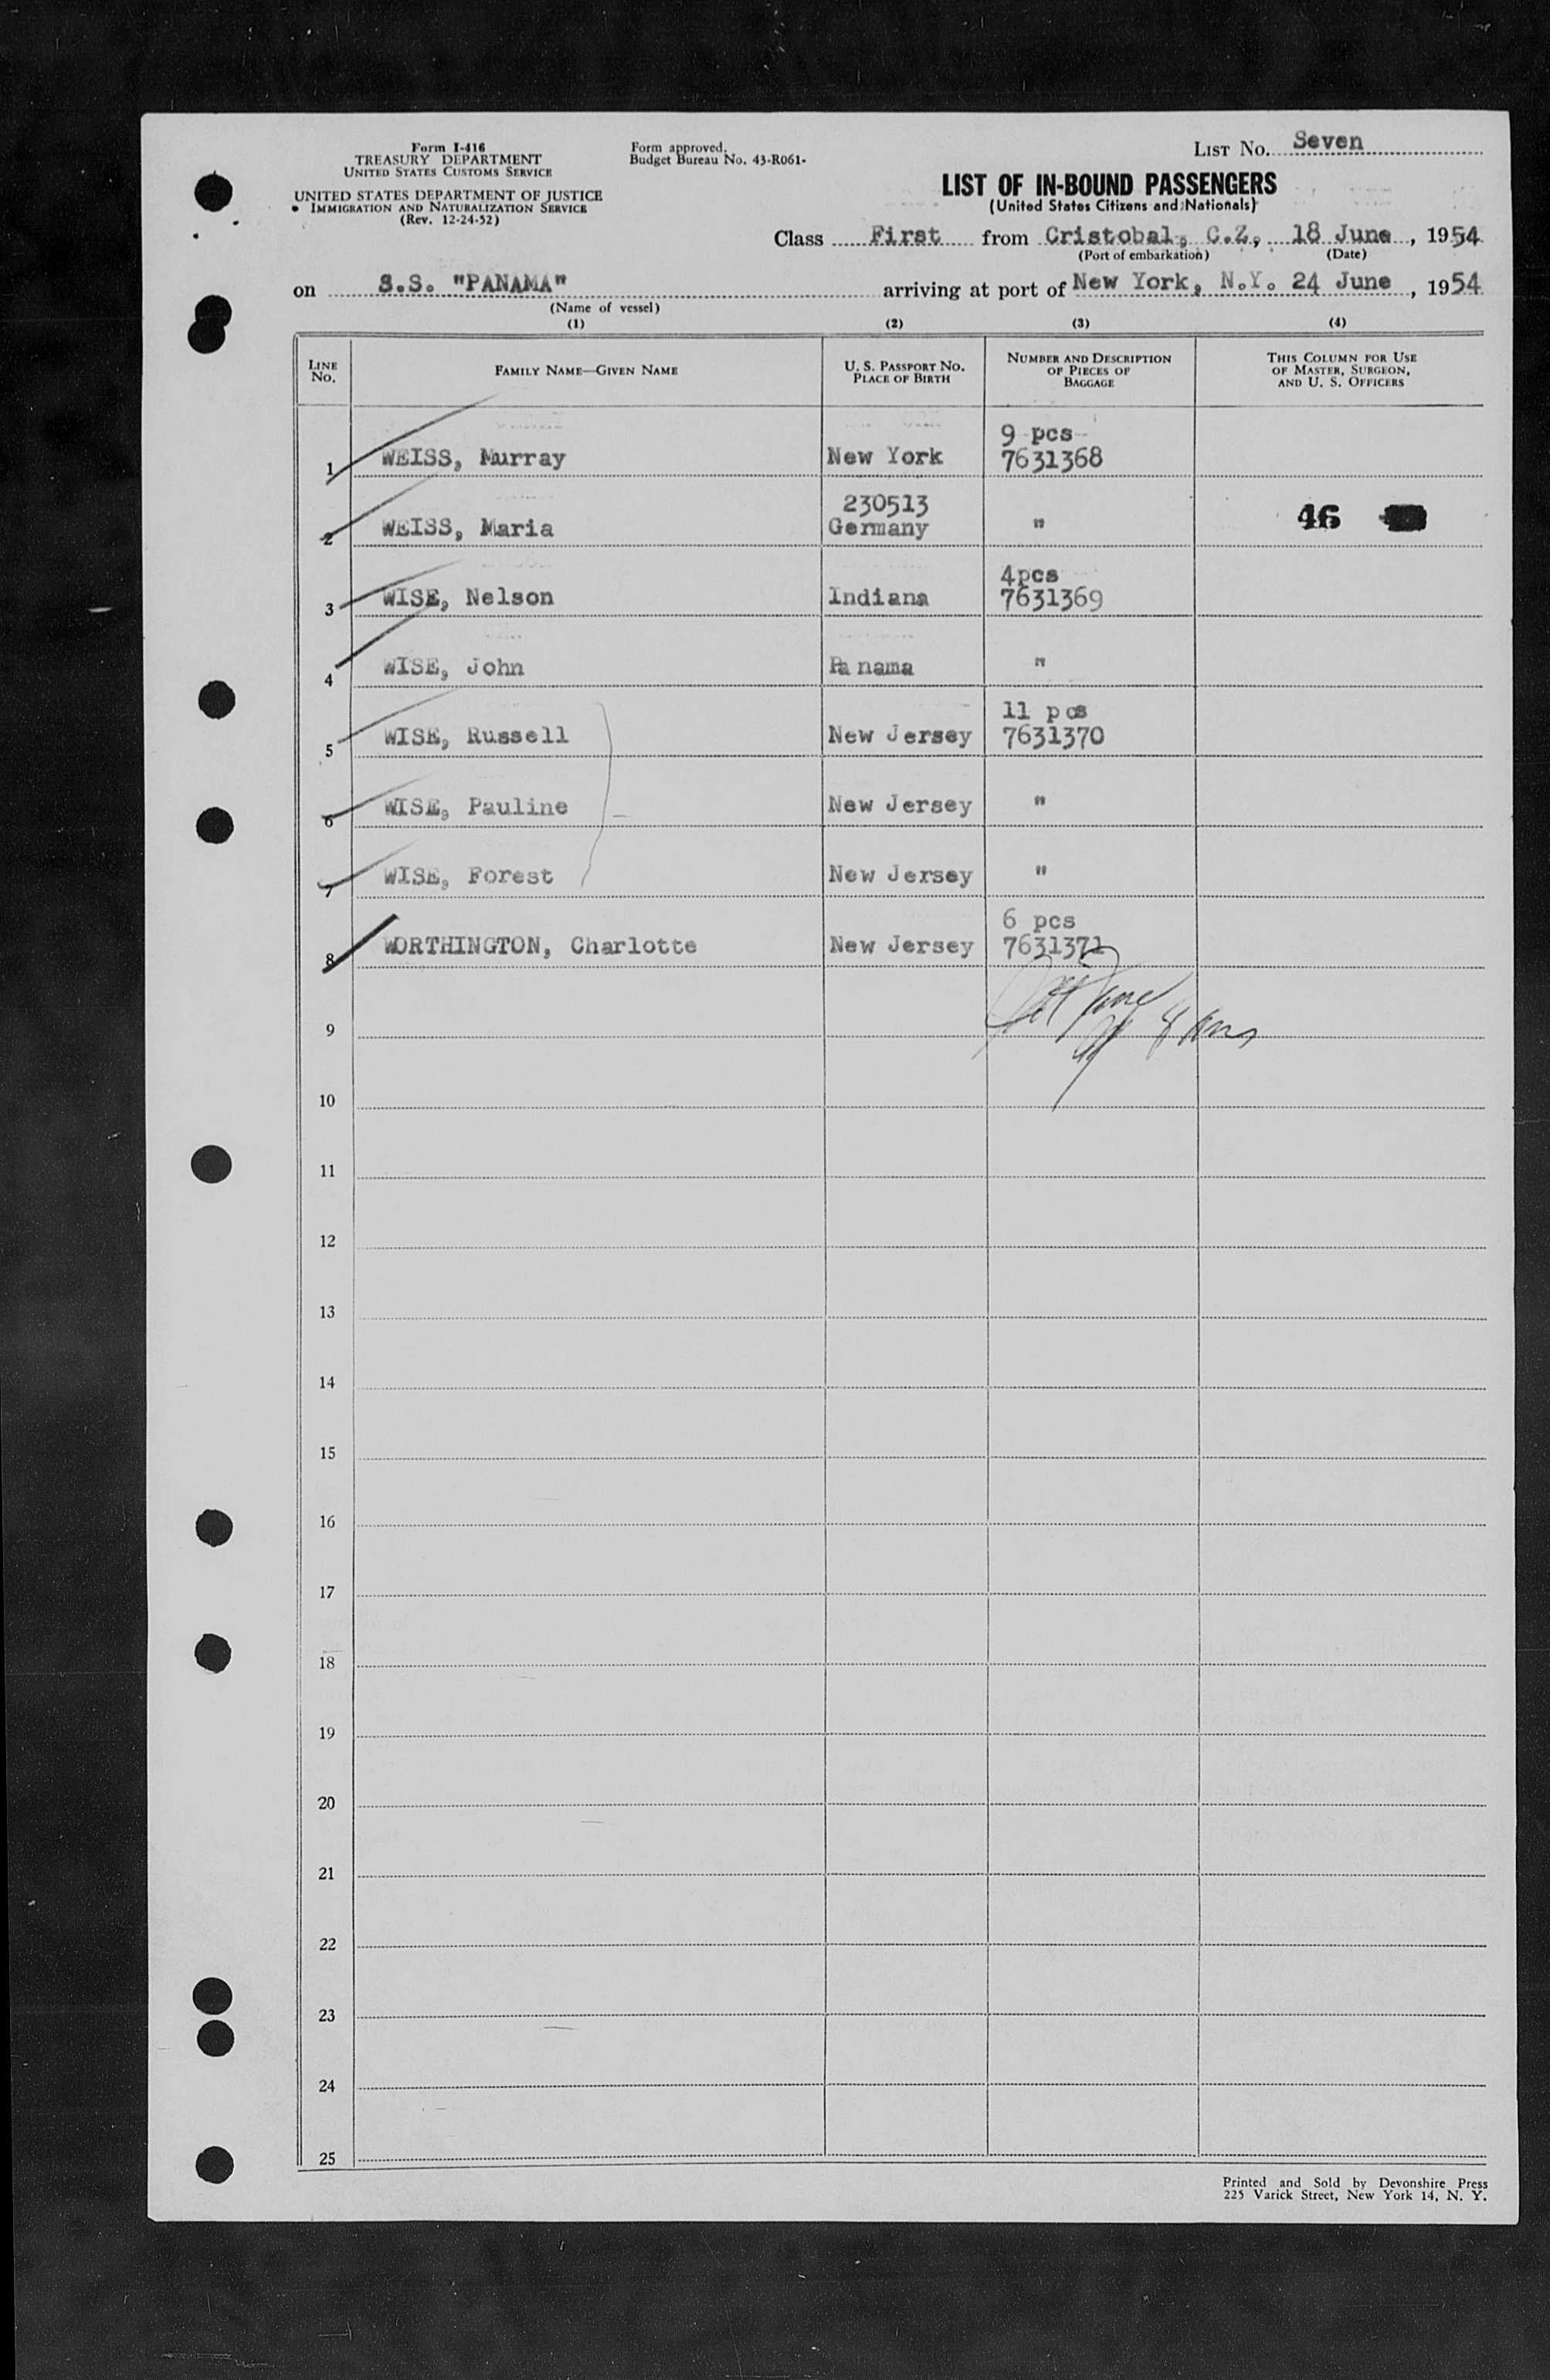 Form I-416
TREASURY DEPARTMENT
UNITED STATES CUSTOMS SERVICE
UNITED STATES DEPARTMENT OF JUSTICE
IMMIGRATION AND NATURALIZATION SERVICE
(Rev. 12-24-52)
Form approved.
Budget Bureau No. 43-R061-
LIST No. Seven
LIST OF IN-BOUND PASSENGERS
(United States Citizens and Nationals)
Class First from Cristobal, C.Z, 18 June, 1954
(Port of embarkation) (Date)
on S.S. "PANAMA" arriving at port of New York, N.Y. 24 June, 1954
(Name of vessel)
(1) (2) (3) (4)
LINE No. FAMILY NAME—GIVEN NAME U. S. PASSPORT NO. PLACE OF BIRTH NUMBER AND DESCRIPTION OF PIECES OF BAGGAGE THIS COLUMN FOR USE OF MASTER, SURGEON, AND U. S. OFFICERS
9 pcs
1 WEISS, Murray New York 7631368
230513
2 WEISS, Maria Germany " 46
4pcs
3 WISE, Nelson Indiana 7631369
4 WISE, John Panama "
11 pcs
5 WISE, Russell New Jersey 7631370
6 WISE, Pauline New Jersey "
7 WISE, Forest New Jersey "
6 pcs
8 WORTHINGTON, Charlotte New Jersey 7631371
9
10
11
12
13
14
15
16
17
18
19
20
21
22
23
24
25
Printed and Sold by Devonshire Press
225 Varick Street, New York 14, N. Y.